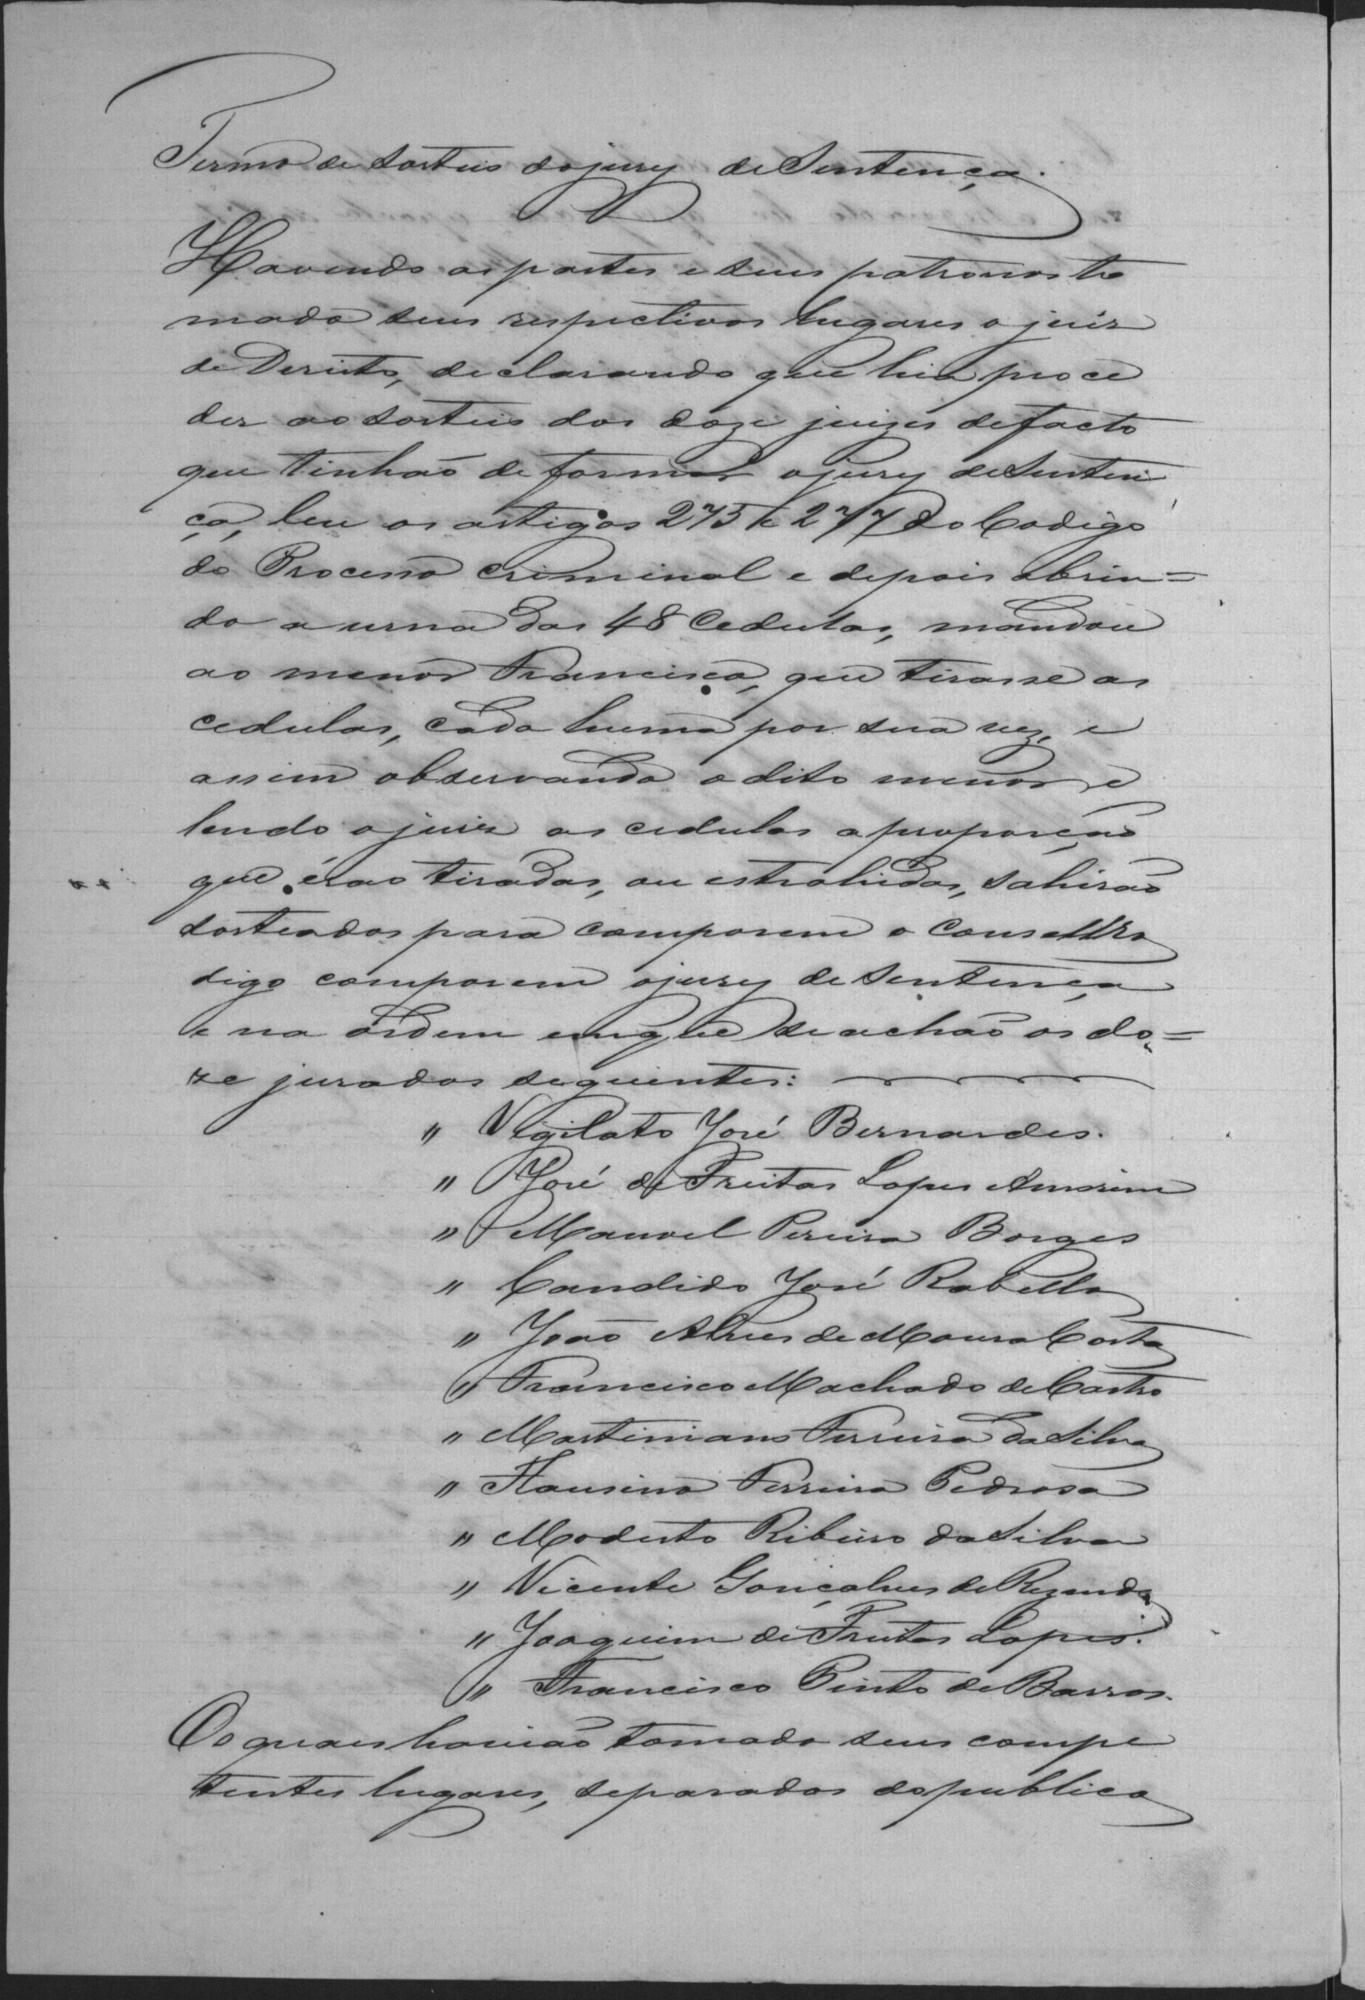 Termo de sorteio do jury de Sentença.
Havendo as partes e seus patronos to
mado seus respectivos lugares o juiz
de Direito, declarando que hia proce
der ao sorteio dos doze juizes de facto
que tinhão de formar o jury de Senten
ça, leu os artigos 275 e 277 do Codigo
do Processo criminal e depois abrin=
do a urna das 48 Cedulas, mandou
ao menor Francisco, que tirasse as
cedulas, cada huma por sua vez, e
assim observando o dito menor e
lendo o juiz as cedulas a proporção
que érão tiradas, ou estrahidas, sahirão
sorteados para comporem o Conselho
digo comporem o jury de Sentença
e na ordem em que se achão os do=
ze jurados seguintes:
" Vigilato José Bernardes.
" José de Freitas Lopes Amorim
" Manoel Pereira Borges
" Candido José Rabello
" João Alves de Moura Costa
" Francisco Machado de Castro
" Martiniano Ferreira da Silva
" Flausino Ferreira Pedrosa
" Modesto Ribeiro da Silva
" Vicente Gonçalves de Rezende
" Joaquim de Freitas Lopes.
" Francisco Pinto de Barros.
Os quaes havião tomado seus compe
tentes lugares, separados do publico